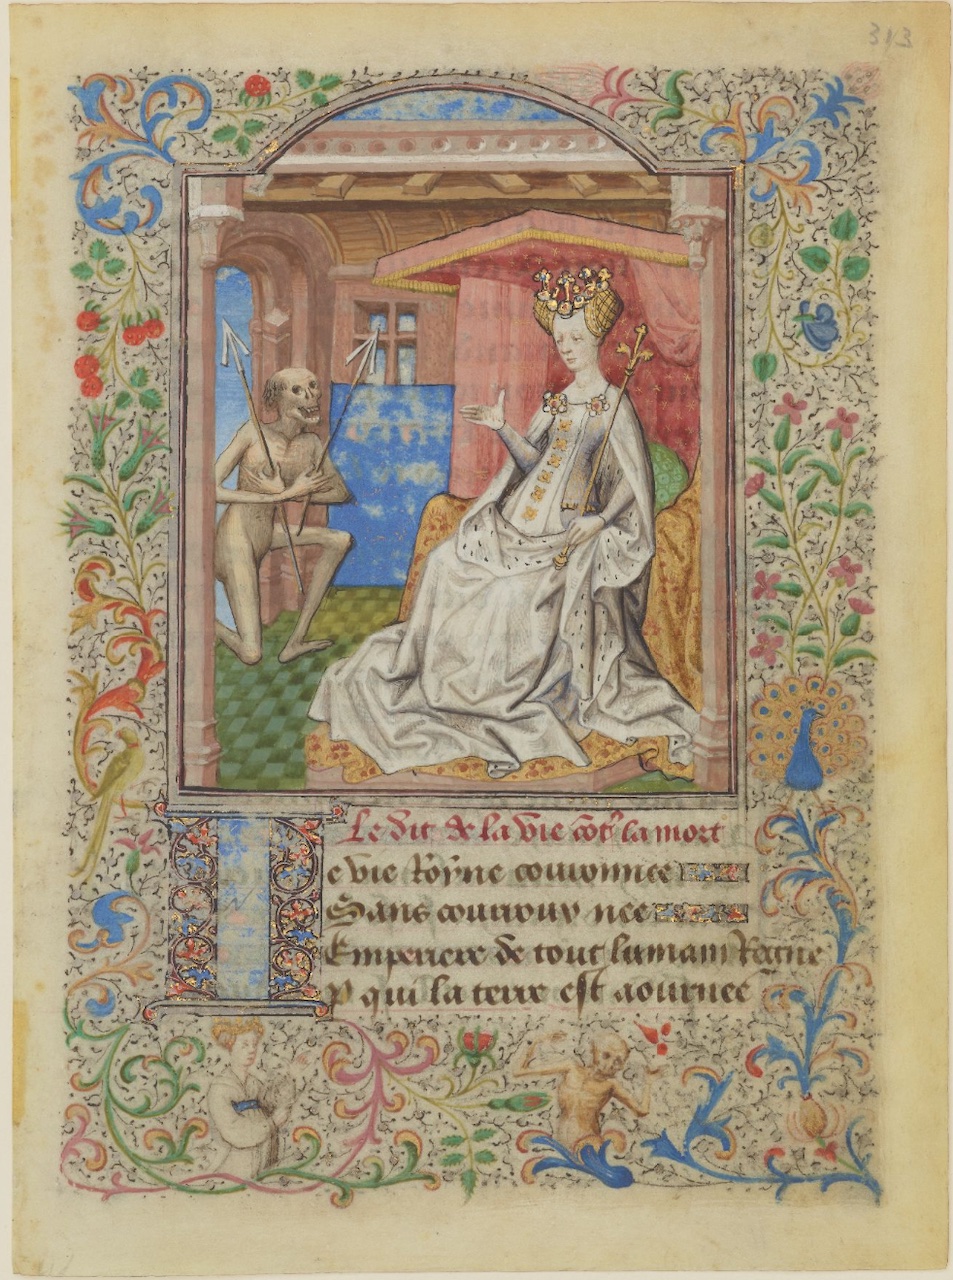 313
Le dit de la vie cot' la mort
Ie vie Royne couronnee
Sans courroux nee
Emperiere de tout humain Regne
P qui la terre est aournee